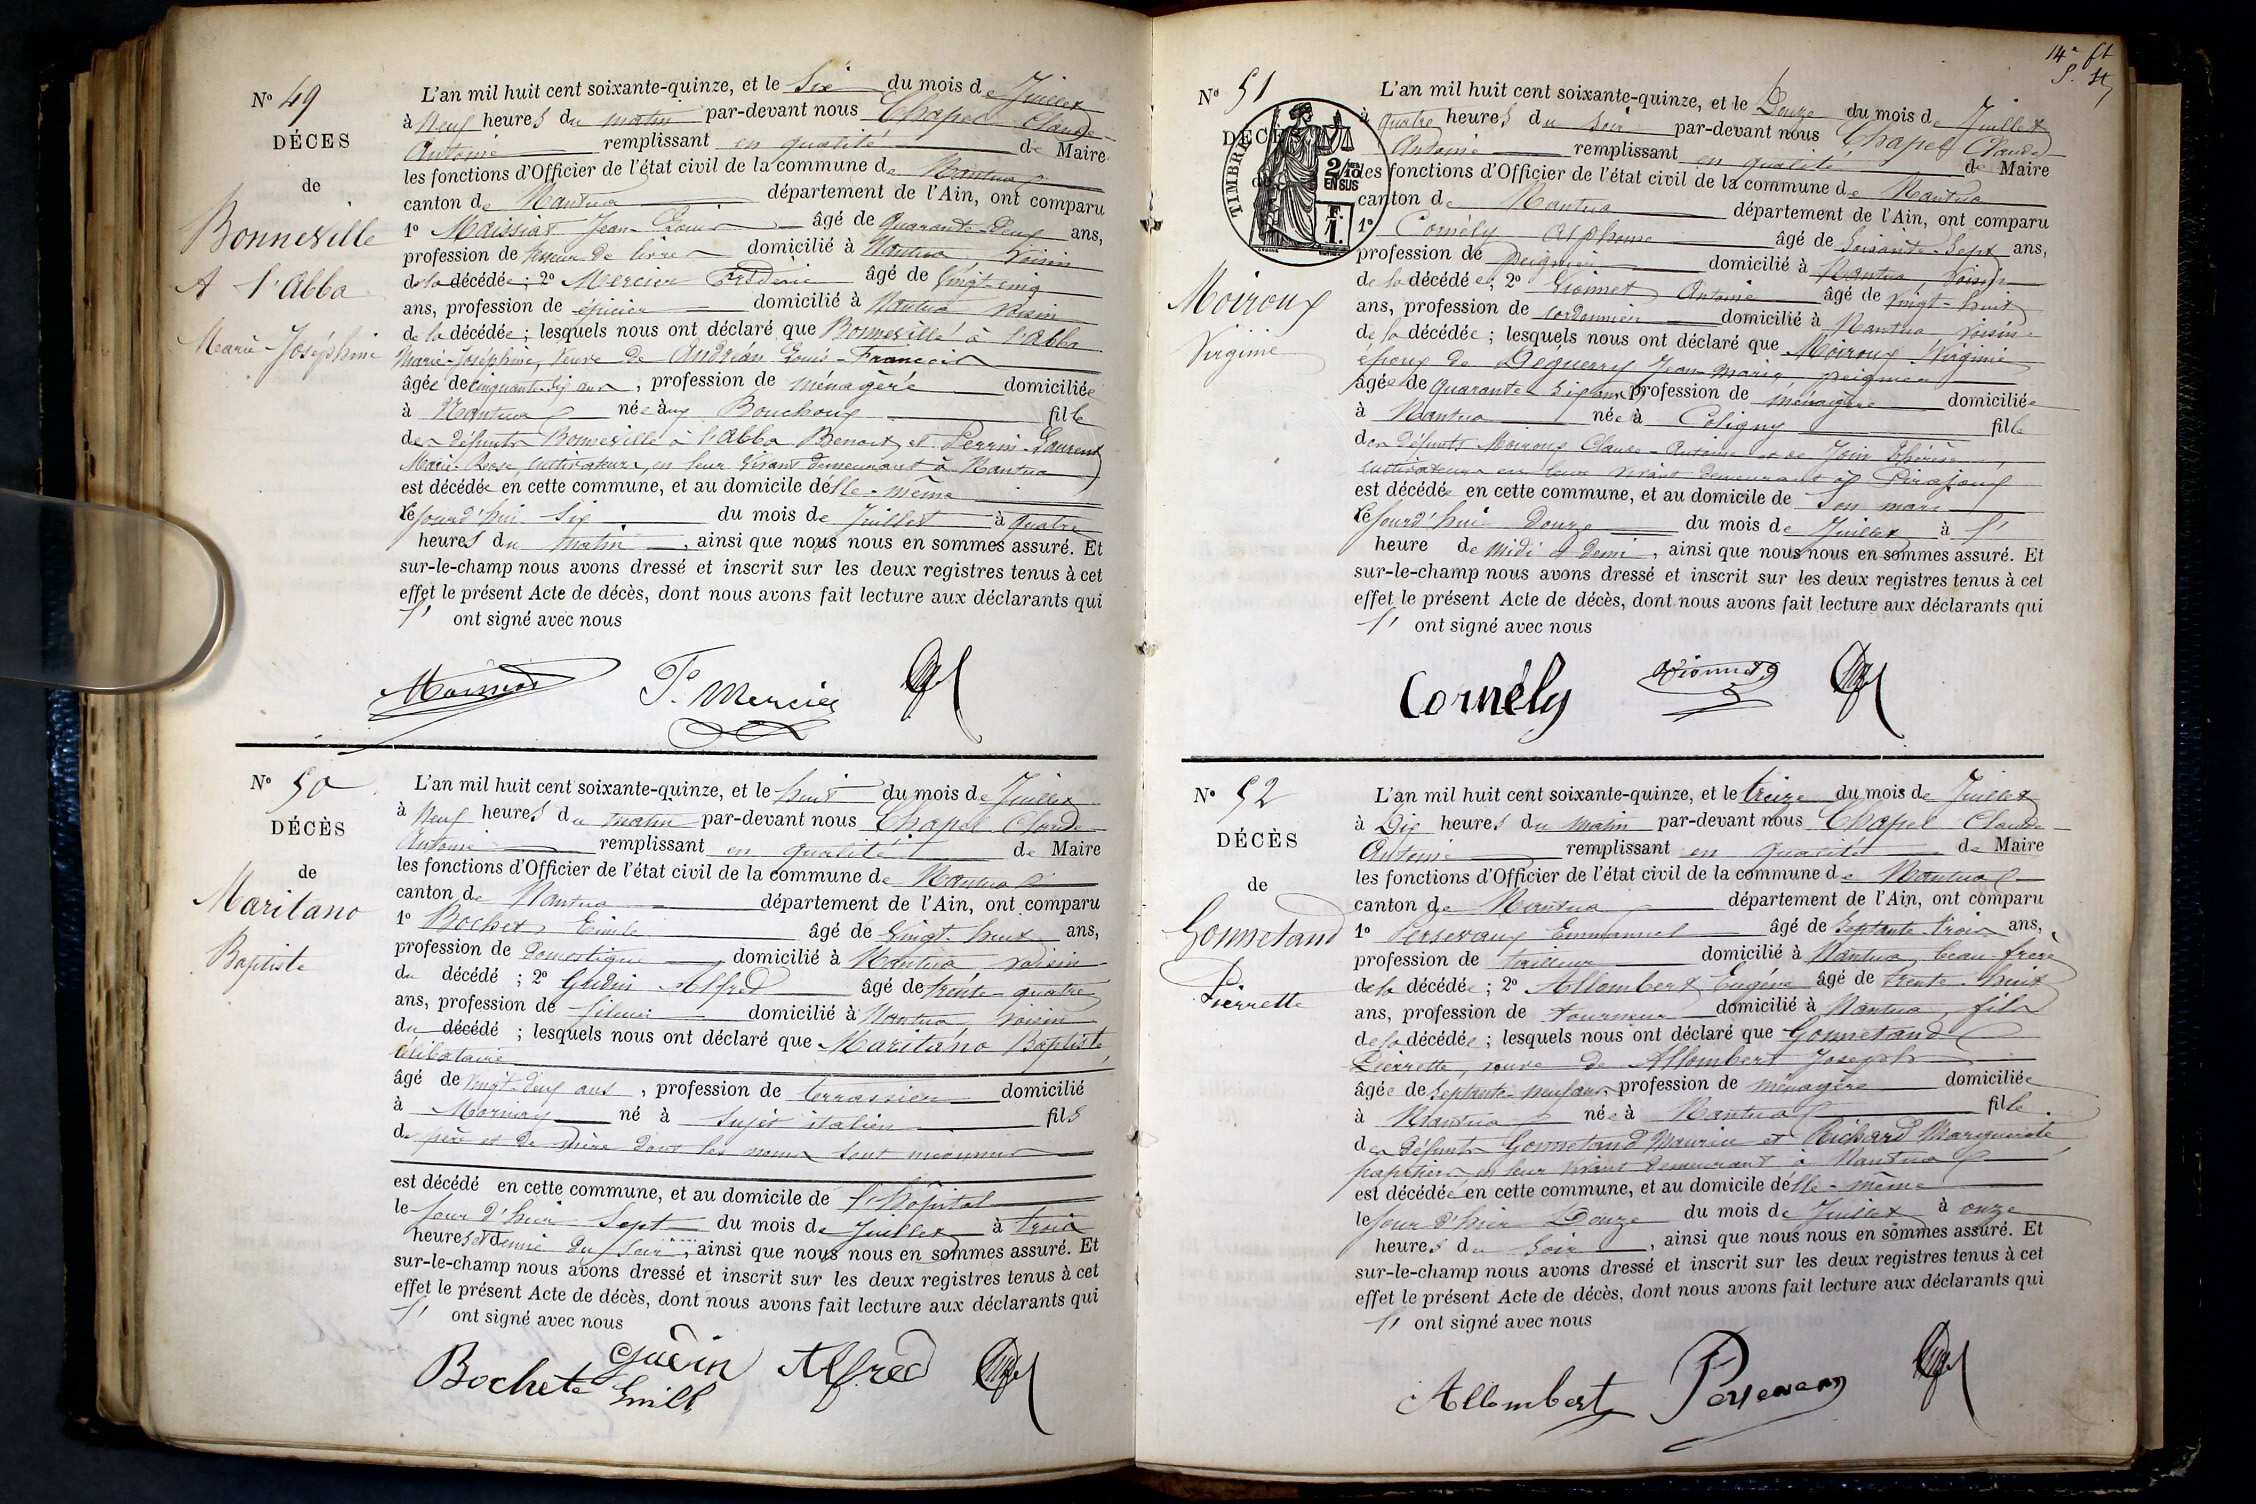 Nº 49
DÉCES
de
Bonneville
A l'Abba
Marie-Joséphine
L'an mil huit cent soixante-quinze, et le Six du mois de Juillet
à Neuf heures du matin par-devant nous Chapel Claude
Antoine remplissant en qualité de Maire
les fonctions d'Officier de l'état civil de la commune de Nantua
canton de Nantua département de l'Ain, ont comparu
1º Maissiat Jean-Louis âgé de quarante-deux ans,
profession de de livres domicilié à Nantua, voisin
de la décédée ; 2º Mercier Frédéric âgé de Vingt-cinq
ans, profession de épicier domicilié à Nantua voisin
de la décédée ; lesquels nous ont déclaré que Bonneville à l'Abba
Marie-Joséphine, veuve de Louis-François
âgée de cinquante-six ans, profession de ménagère domiciliée
à Nantua née aux Bouchoux fille
des défunts Bonneville à l'Abba Benoit et Perrin-Laurent
Marie-Rose, cultivateurs, en leur vivant demeurant à Nantua
est décédée en cette commune, et au domicile d'elle-même
le jourd'hui Six du mois de Juillet à quatre
heures du matin, ainsi que nous nous en sommes assuré. Et
sur-le-champ nous avons dressé et inscrit sur les deux registres tenus à cet
effet le présent Acte de décès, dont nous avons fait lecture aux déclarants qui
ont signé avec nous
Maissiat F. Mercier
Nº 50
DÉCÈS
de
Maritano
Baptiste
L'an mil huit cent soixante-quinze, et le huit du mois de Juillet
à Neuf heures du matin par-devant nous Chapel Claude
Antoine remplissant en qualité de Maire
les fonctions d'Officier de l'état civil de la commune de Nantua
canton de Nantua département de l'Ain, ont comparu
1º Bochet Emile âgé de Vingt-huit ans,
profession de domestique domicilié à Nantua voisin
du décédé ; 2º Gudin Alfred âgé de trente-quatre
ans, profession de fileur domicilié à Nantua, voisin
du décédé ; lesquels nous ont déclaré que Maritano Baptiste
célibataire
âgé de vingt-deux ans, profession de terrassier domicilié
à Mornay né à sujet italien fils
de père et de mère dont les noms sont inconnus
est décédé en cette commune, et au domicile de l'hôpital
le jour d'hier Sept du mois de Juillet à trois
heures et demie du soir, ainsi que nous nous en sommes assuré. Et
sur-le-champ nous avons dressé et inscrit sur les deux registres tenus à cet
effet le présent Acte de décès, dont nous avons fait lecture aux déclarants qui
ont signé avec nous
Gudin Alfred
Bochet Emile
14e ft
Nº 51
DÉCÈ
de
TIMBRE
2/10
EN SUS
F.
1.
Moiroux
Virginie
L'an mil huit cent soixante-quinze, et le Douze du mois de Juillet
à quatre heures du soir par-devant nous Chapel Claude
Antoine remplissant en qualité de Maire
les fonctions d'Officier de l'état civil de la commune de Nantua
canton de Nantua département de l'Ain, ont comparu
1º Cornély Alphonse âgé de Soixante-Sept ans,
profession de peignier domicilié à Nantua, voisin
de la décédée ; 2º Vionnet Antoine âgé de vingt-huit
ans, profession de cordonnier domicilié à Nantua voisin
de la décédée ; lesquels nous ont déclaré que Moiroux Virginie
épouse de Déguerry Jean-Marie peignier
âgée de quarante-six ans profession de ménagère domiciliée
à Nantua née à Coligny fille
des défunts Moiroux Claude-Antoine et de Join Thérèse
cultivateurs en leur vivant demeurant à Pirajoux
est décédée en cette commune, et au domicile de son mari
le jourd'hui Douze du mois de Juillet à l'
heure de midi et demi, ainsi que nous nous en sommes assuré. Et
sur-le-champ nous avons dressé et inscrit sur les deux registres tenus à cet
effet le présent Acte de décès, dont nous avons fait lecture aux déclarants qui
ont signé avec nous
Cornély Vionnet
Nº 52
DÉCÈS
de
Gonnetand
Pierrette
L'an mil huit cent soixante-quinze, et le treize du mois de Juillet
à Dix heures du matin par-devant nous Chapel Claude
Antoine remplissant en qualité de Maire
les fonctions d'Officier de l'état civil de la commune de Nantua
canton de Nantua département de l'Ain, ont comparu
1º Persevaux Emmanuel âgé de Septante-trois ans,
profession de tailleur domicilié à Nantua, beau-frère
de la décédée ; 2º Allombert Eugène âgé de trente-huit
ans, profession de tourneur domicilié à Nantua, fils
de la décédée ; lesquels nous ont déclaré que Gonnetand
Pierrette, veuve de Allombert Joseph
âgée de Septante-neuf ans, profession de ménagère domiciliée
à Nantua née à Nantua fille
des défunts Gonnetand Maurice et Richard Marguerite
papetiers en leur vivant demeurant à Nantua
est décédée en cette commune, et au domicile d'elle-même
le jour d'hier Douze du mois de Juillet à onze
heures du soir, ainsi que nous nous en sommes assuré. Et
sur-le-champ nous avons dressé et inscrit sur les deux registres tenus à cet
effet le présent Acte de décès, dont nous avons fait lecture aux déclarants qui
ont signé avec nous
Allombert Persevaux